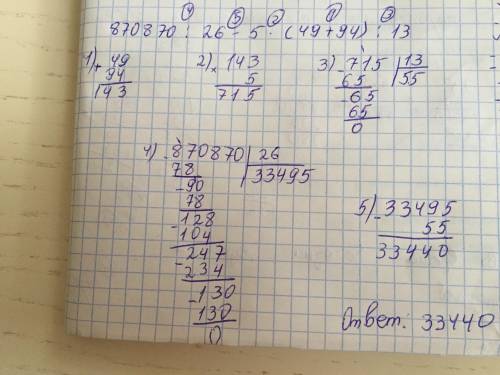 ④ ⑤ ② ① ③
870870 : 26 - 5 · (49+94) : 13
1) + 49
94
143
2) × 143
5
715
3) - 715 | 13
65 | 55
- 65
65
0
4) - 870870 | 26
78 | 33495
- 90
78
- 128
104
- 247
234
- 130
130
0
5) - 33495
55
33440
Ответ: 33440